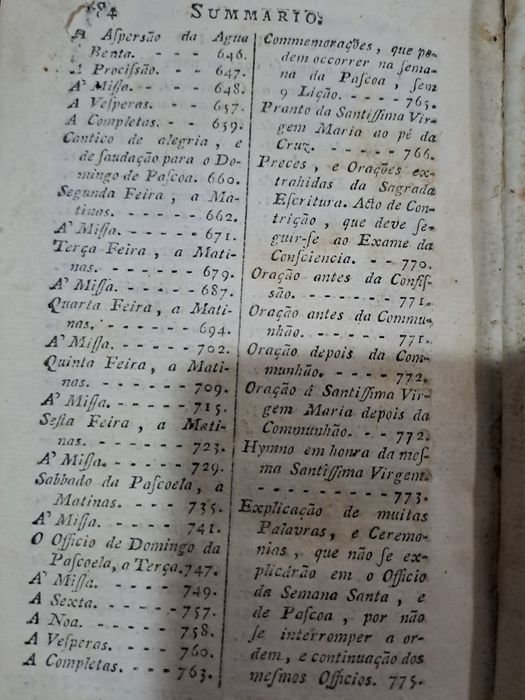 SUMMARIO.
A Aſpersão da Agua
Benta. - - - 646.
A Prociſsão. - - 647.
A' Miſſa. - - - - 648.
A Veſperas. - - - 657.
A Completas. - - - 659.
Cantico de alegria, e
de ſaudação para o Do-
mingo de Paſcoa. 660.
Segunda Feira, a Ma-
tinas. - - - - - 662.
A' Miſſa. - - - - - 671.
Terça Feira, a Mati-
nas. - - - - - - 679.
A' Miſſa. - - - - - 687.
Quarta Feira, a Mati-
nas. - - - - - - 694.
A' Miſſa. - - - - - 702.
Quinta Feira, a Mati-
nas. - - - - - - 709.
A' Miſſa. - - - - - 715.
Seſta Feira, a Mati-
nas. - - - - - - 723.
A' Miſſa. - - - - - 729.
Sabbado da Paſcoela, a
Matinas. - - - - 735.
A' Miſſa. - - - - - 741.
O Officio de Domingo da
Paſcoela, a Terça. 747.
A' Miſſa. - - - - - 749.
A Sexta. - - - - - 757.
A Noa. - - - - - 758.
A Veſperas. - - - - 760.
A Completas. - - - 763.
Commemorações, que po-
dem occorrer na ſema-
na da Paſcoa, ſem
9 Lição. - - - - - 765.
Pranto da Santiſſima Vir-
gem Maria ao pé da
Cruz. - - - - - 766.
Preces, e Orações ex-
trahidas da Sagrada
Eſcritura. Acto de Con-
trição, que deve ſe-
guir-ſe ao Exame da
Conſciencia. - - 770.
Oração antes da Confiſ-
são. - - - - - - - 771.
Oração antes da Commu-
nhão. - - - - - - 771.
Oração depois da Com-
munhão. - - - - 772.
Oração á Santiſſima Vir-
gem Maria depois da
Communhão. - - 772.
Hymno em honra da meſ-
ma Santiſſima Virgem.
- - - - - - - - - - 773.
Explicação de muitas
Palavras, e Ceremo-
nias, que não ſe ex-
plicárão em o Officio
da Semana Santa, e
de Paſcoa, por não
ſe interromper a or-
dem, e continuação dos
meſmos Officios. 775.